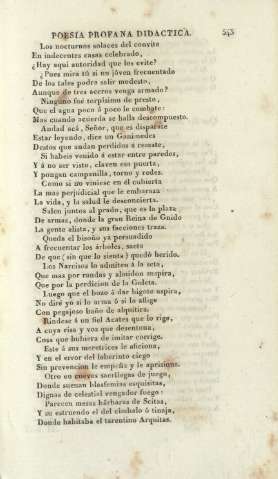 POESÍA PROFANA DIDACTICA. 543
Los nocturnos solaces del convite
En indecentes casas celebrado,
¿Hay aquí autoridad que los evite?
¿Pues mira tú si un jóven frecuentado
De los tales podra saler modesto,
Aunque de tres aceros venga armado?
Ninguno fue torpisimo de presto,
Que el agua poco á poco le combate:
Mas cuando acuerda se halla descompuesto.
Andad acá, Señor, que es disparate
Estar leyendo, dice un Ganimedes
Destos que andan perdidos á remate,
Si habeis venido á estar entre paredes,
Y á no ser visto, claven esa puerta,
Y pongan campanilla, torno y redes.
Como si no viniese en él cubierta
La mas perjudicial que le embaraza
La vida, y la salud le desconcierta.
Salen juntos al prado, que es la plaza
De armas, donde la gran Reina de Gnido
La gente alista, y sus facciones traza.
Queda el bisoño ya persuadido
A frecuentar los árboles, saeta
De que (sin que lo sienta) quedó herido.
Los Narcisos lo admiten á la seta,
Que mas por randas y almidon suspira,
Que por la perdicion de la Goleta.
Luego que el bozo á dar bigote aspira,
No diré yo si lo arma ó si lo aflige
Con pegajoso baño de alquitira
Rindese á un fiel Acates que lo rige,
A cuya risa y voz que desentona,
Cosa que hubiera de imitar corrige.
Este á sus meretrices le aficiona,
Y en el error del laberinto ciego
Sin prevencion le empeña y le aprisiona.
Otro en cuevas sacrilegas de juego,
Donde suenan blasfemias esquisitas,
Dignas de celestial vengador fuego:
Parecen mesas bárbaras de Scitas,
Y su estruendo el del címbalo ó tinaja,
Donde habitaba el tarentino Arquitas.